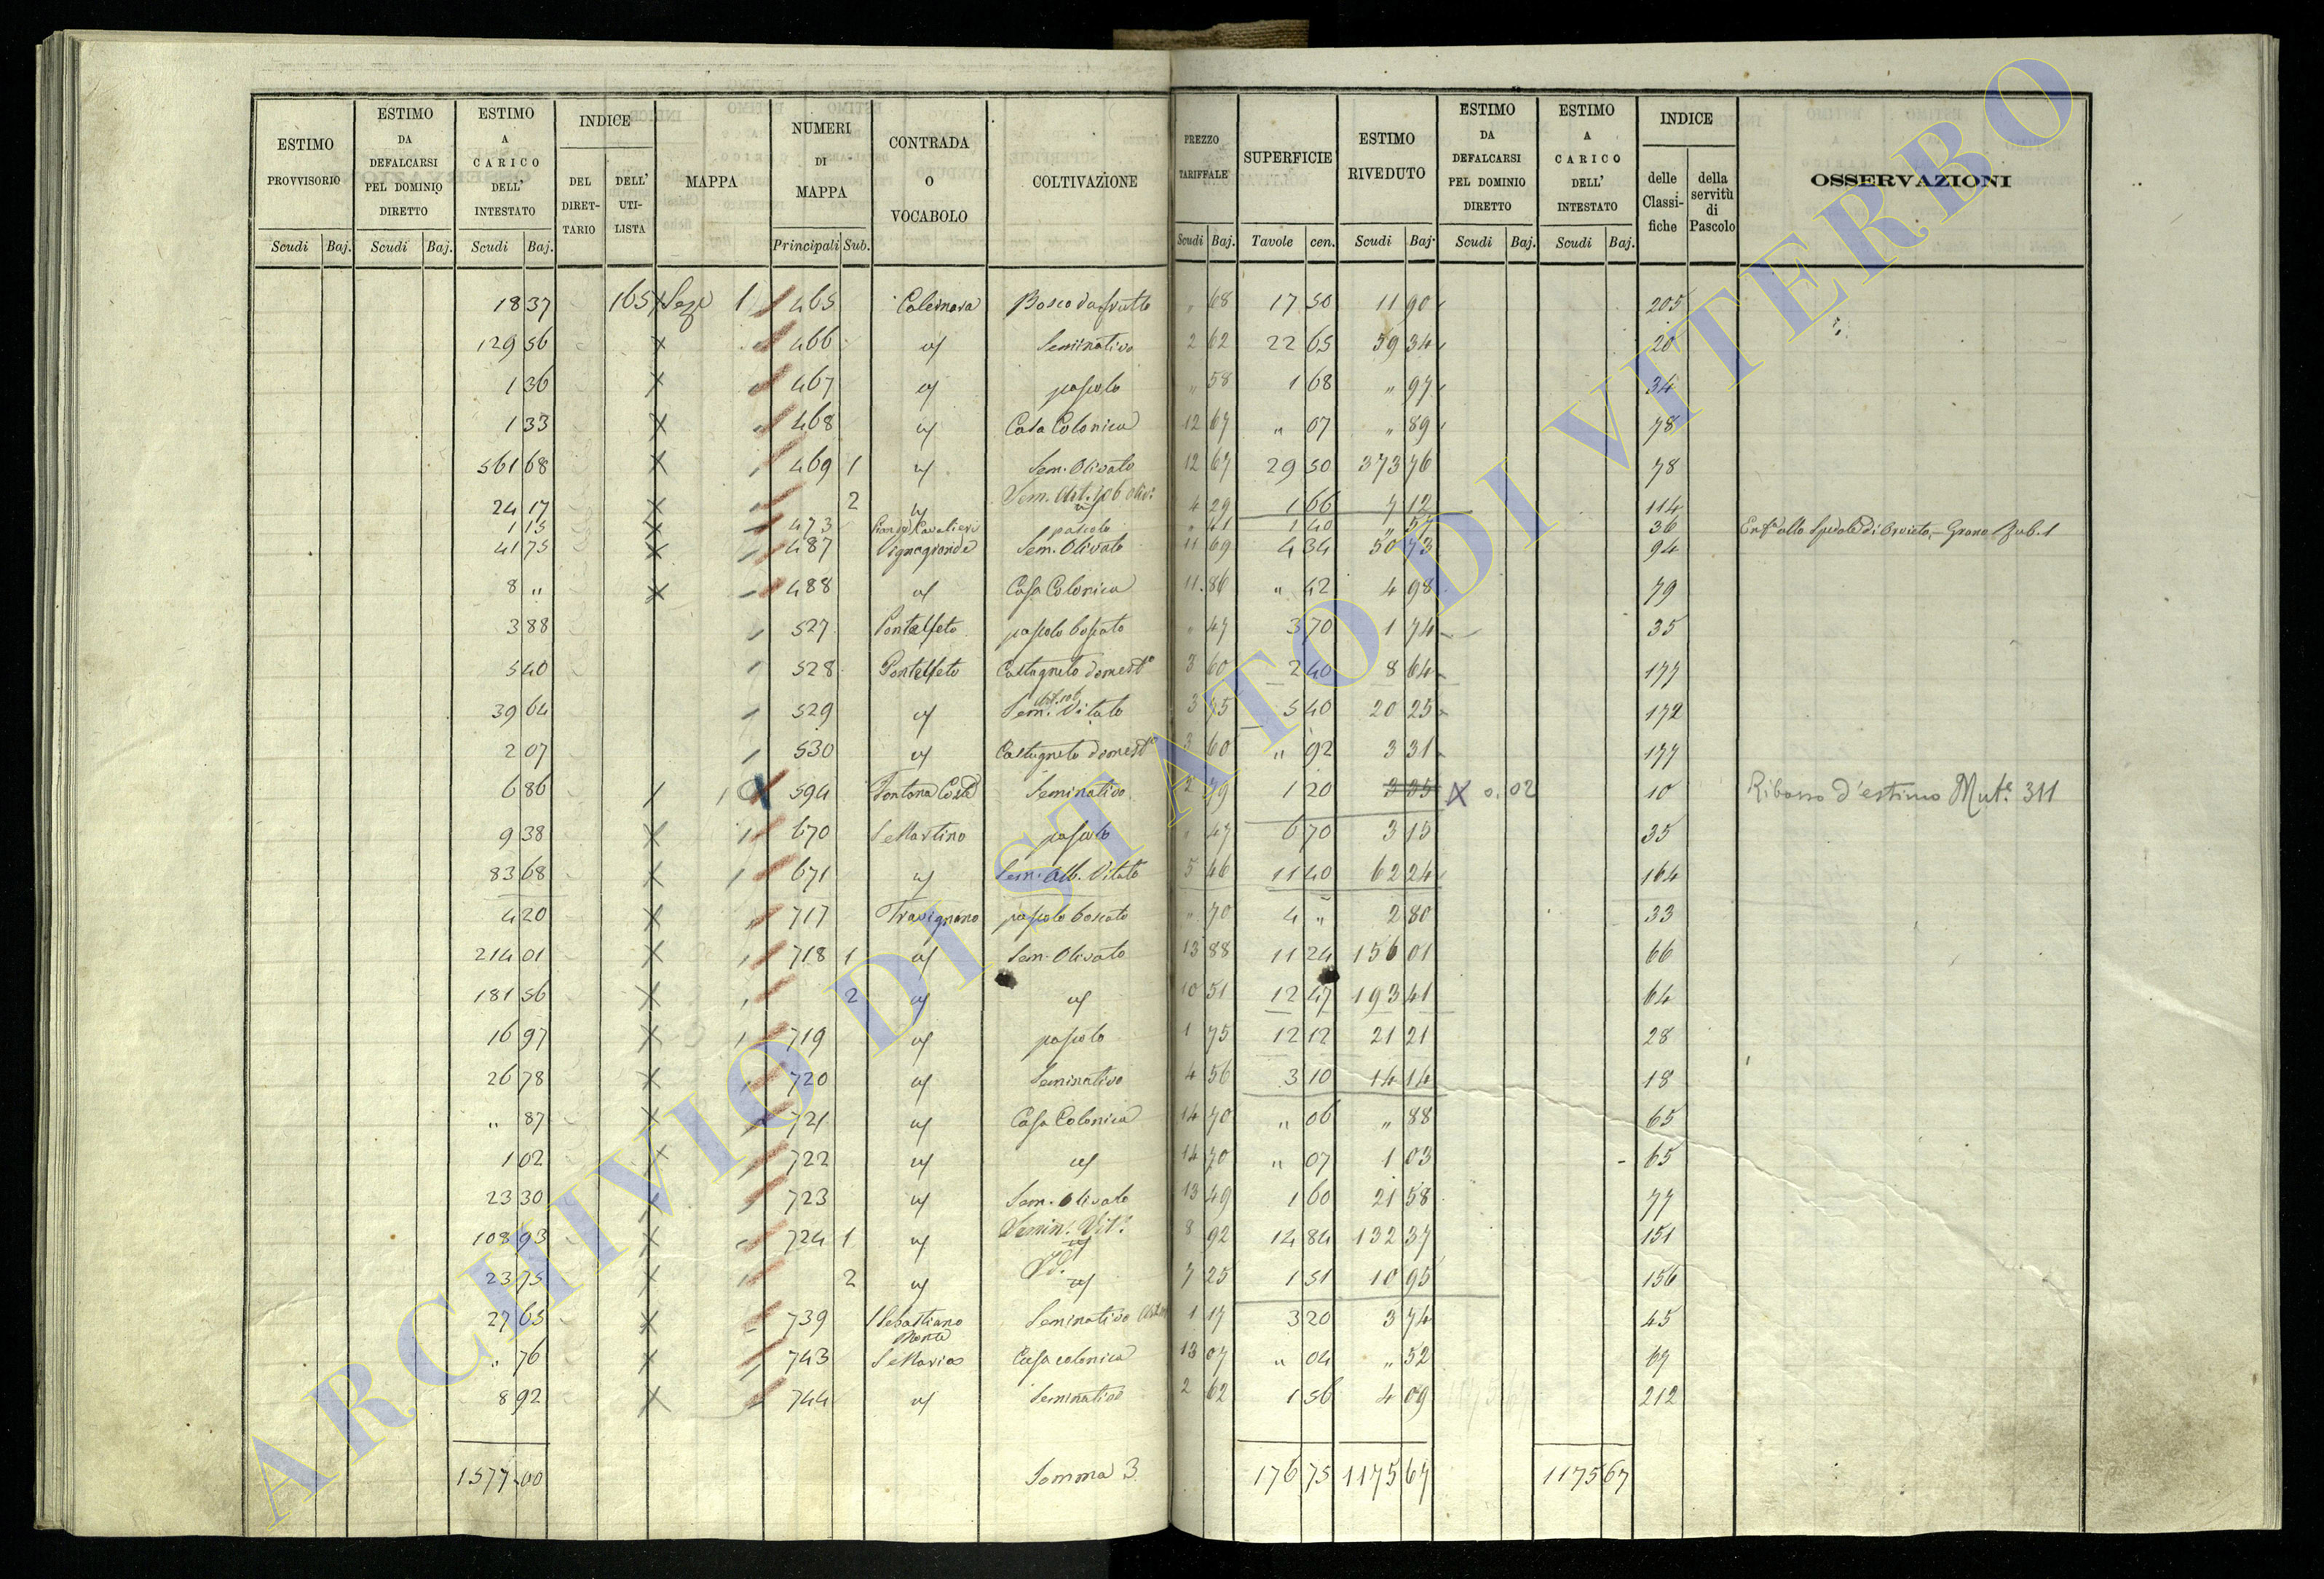 ESTIMO PROVVISORIO | ESTIMO DA DEFALCARSI PEL DOMINIO DIRETTO | ESTIMO A CARICO DELL' INTESTATO | INDICE DEL DIRET-TARIO | DELL' UTI-LISTA | MAPPA | NUMERI DI MAPPA | CONTRADA O VOCABOLO | COLTIVAZIONE | PREZZO TARIFFALE | SUPERFICIE | ESTIMO RIVEDUTO | ESTIMO DA DEFALCARSI PEL DOMINIO DIRETTO | ESTIMO A CARICO DELL' INTESTATO | INDICE delle Classi-fiche | della servitù di Pascolo | OSSERVAZIONI
Scudi | Baj. | Scudi | Baj. | Scudi | Baj. | Principali | Sub. | Scudi | Baj. | Tavole | cen. | Scudi | Baj. | Scudi | Baj. | Scudi | Baj.
18 37 | 165 | Sez. 1 | 465 | Bosco da frutto | " 68 | 17 50 | 11 90 | 205
129 56 | 466 | Seminativo | 2 62 | 22 65 | 59 34 | 20
1 36 | 467 | pascolo | " 58 | 1 68 | " 97 | 34
1 33 | 468 | Casa Colonica | 12 67 | " 07 | " 89 | 78
561 68 | 469 1 | Sem. Olivato | 12 67 | 29 50 | 373 76 | 78
24 17 | 2 | 4 29 | 1 66 | 7 12 | 114
1 15 | 473 | pascolo | " 41 | 1 40 | " 57 | 36
41 75 | 487 | Vignagrande | Sem. Olivato | 11 69 | 4 34 | 50 73 | 94
8 " | 488 | Casa Colonica | 11 86 | " 42 | 4 98 | 79
3 88 | 527 | pascolo boscato | " 47 | 3 70 | 1 74 | 35
5 40 | 528 | Castagneto domest° | 3 60 | 2 40 | 8 64 | 177
39 64 | 529 | Sem. Vitato | 3 75 | 5 40 | 20 25 | 172
2 07 | 530 | Castagneto domest° | 3 60 | " 92 | 3 31 | 177
6 86 | 594 | Seminativo | 2 79 | 1 20 | 3 35 | X 0.02 | 10 | Ribasso d'estimo Mut.e 311
9 38 | 670 | S. Martino | pascolo | " 47 | 6 70 | 3 15 | 35
83 68 | 671 | Sem. Alb. Vitato | 5 46 | 11 40 | 62 24 | 164
4 20 | 717 | Travignano | pascolo boscato | " 70 | 4 " | 2 80 | 33
214 01 | 718 1 | Sem. Olivato | 13 88 | 11 24 | 156 01 | 66
181 56 | 2 | 10 51 | 12 47 | 193 41 | 64
16 97 | 719 | pascolo | 1 75 | 12 12 | 21 21 | 28
26 78 | 720 | Seminativo | 4 56 | 3 10 | 14 14 | 18
" 87 | 721 | Casa Colonica | 14 70 | " 06 | " 88 | 65
1 02 | 722 | 14 70 | " 07 | 1 03 | 65
23 30 | 723 | Sem. Olivato | 13 49 | 1 60 | 21 58 | 77
108 93 | 724 1 | Semin. Vit. | 8 92 | 14 84 | 132 37 | 151
23 75 | 2 | Id. | 7 25 | 1 51 | 10 95 | 156
27 65 | 739 | Sebastiano | Seminativo | 1 17 | 3 20 | 3 74 | 45
" 76 | 743 | S. Maria | Casa colonica | 13 07 | " 04 | " 52 | 67
8 92 | 744 | Seminativo | 2 62 | 1 56 | 4 09 | 212
1577.00 | Somma 3 | 176 75 | 1175 67 | 1175 67
ARCHIVIO DI STATO DI VITERBO